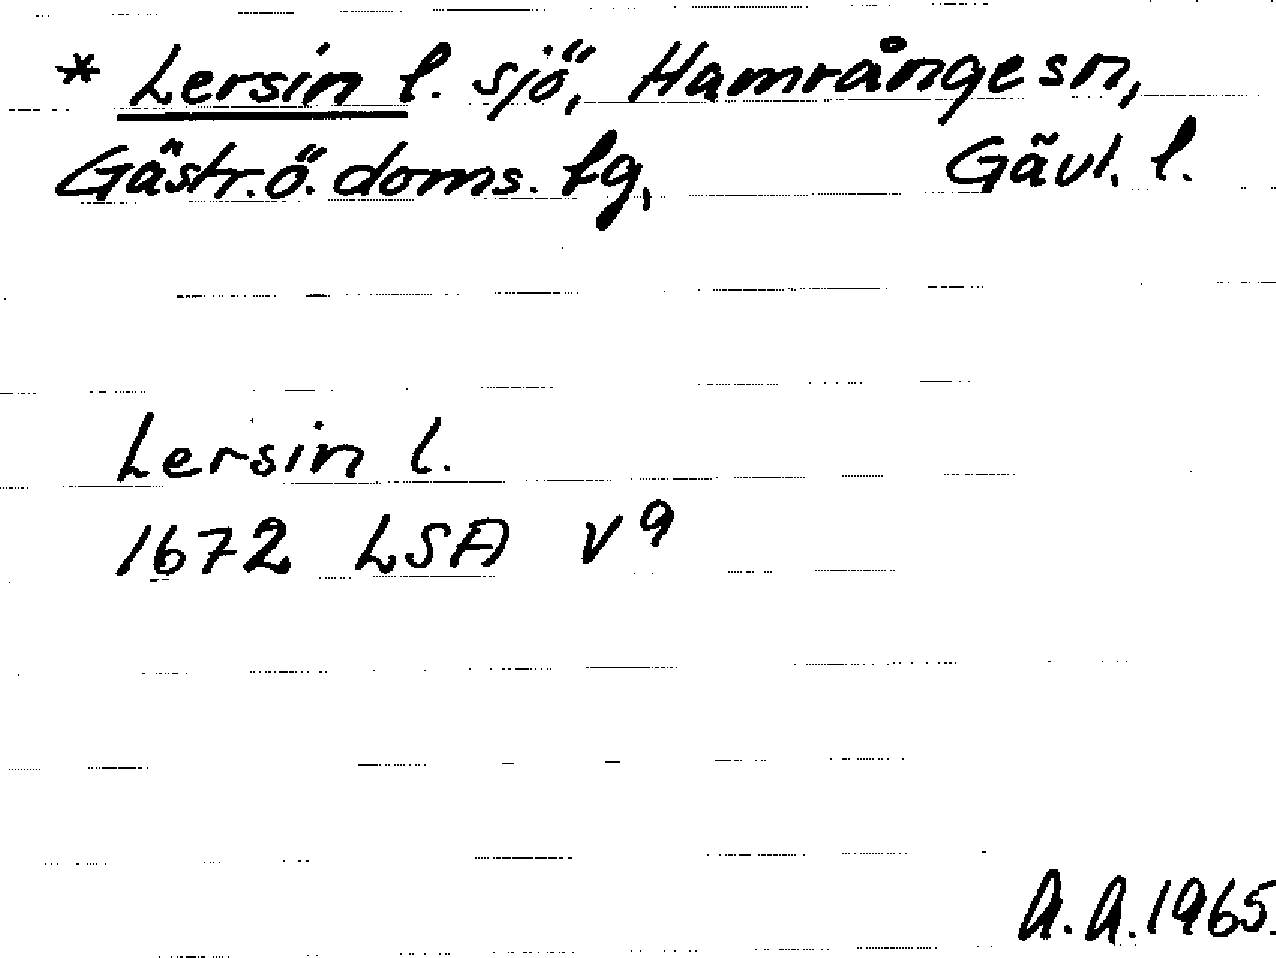 * Lersin l. sjö, Hamrånge sn,
Gästr. ö. doms. fg, Gävl. l.
Lersin l.
1672 LSA v 9
A. A. 1965.